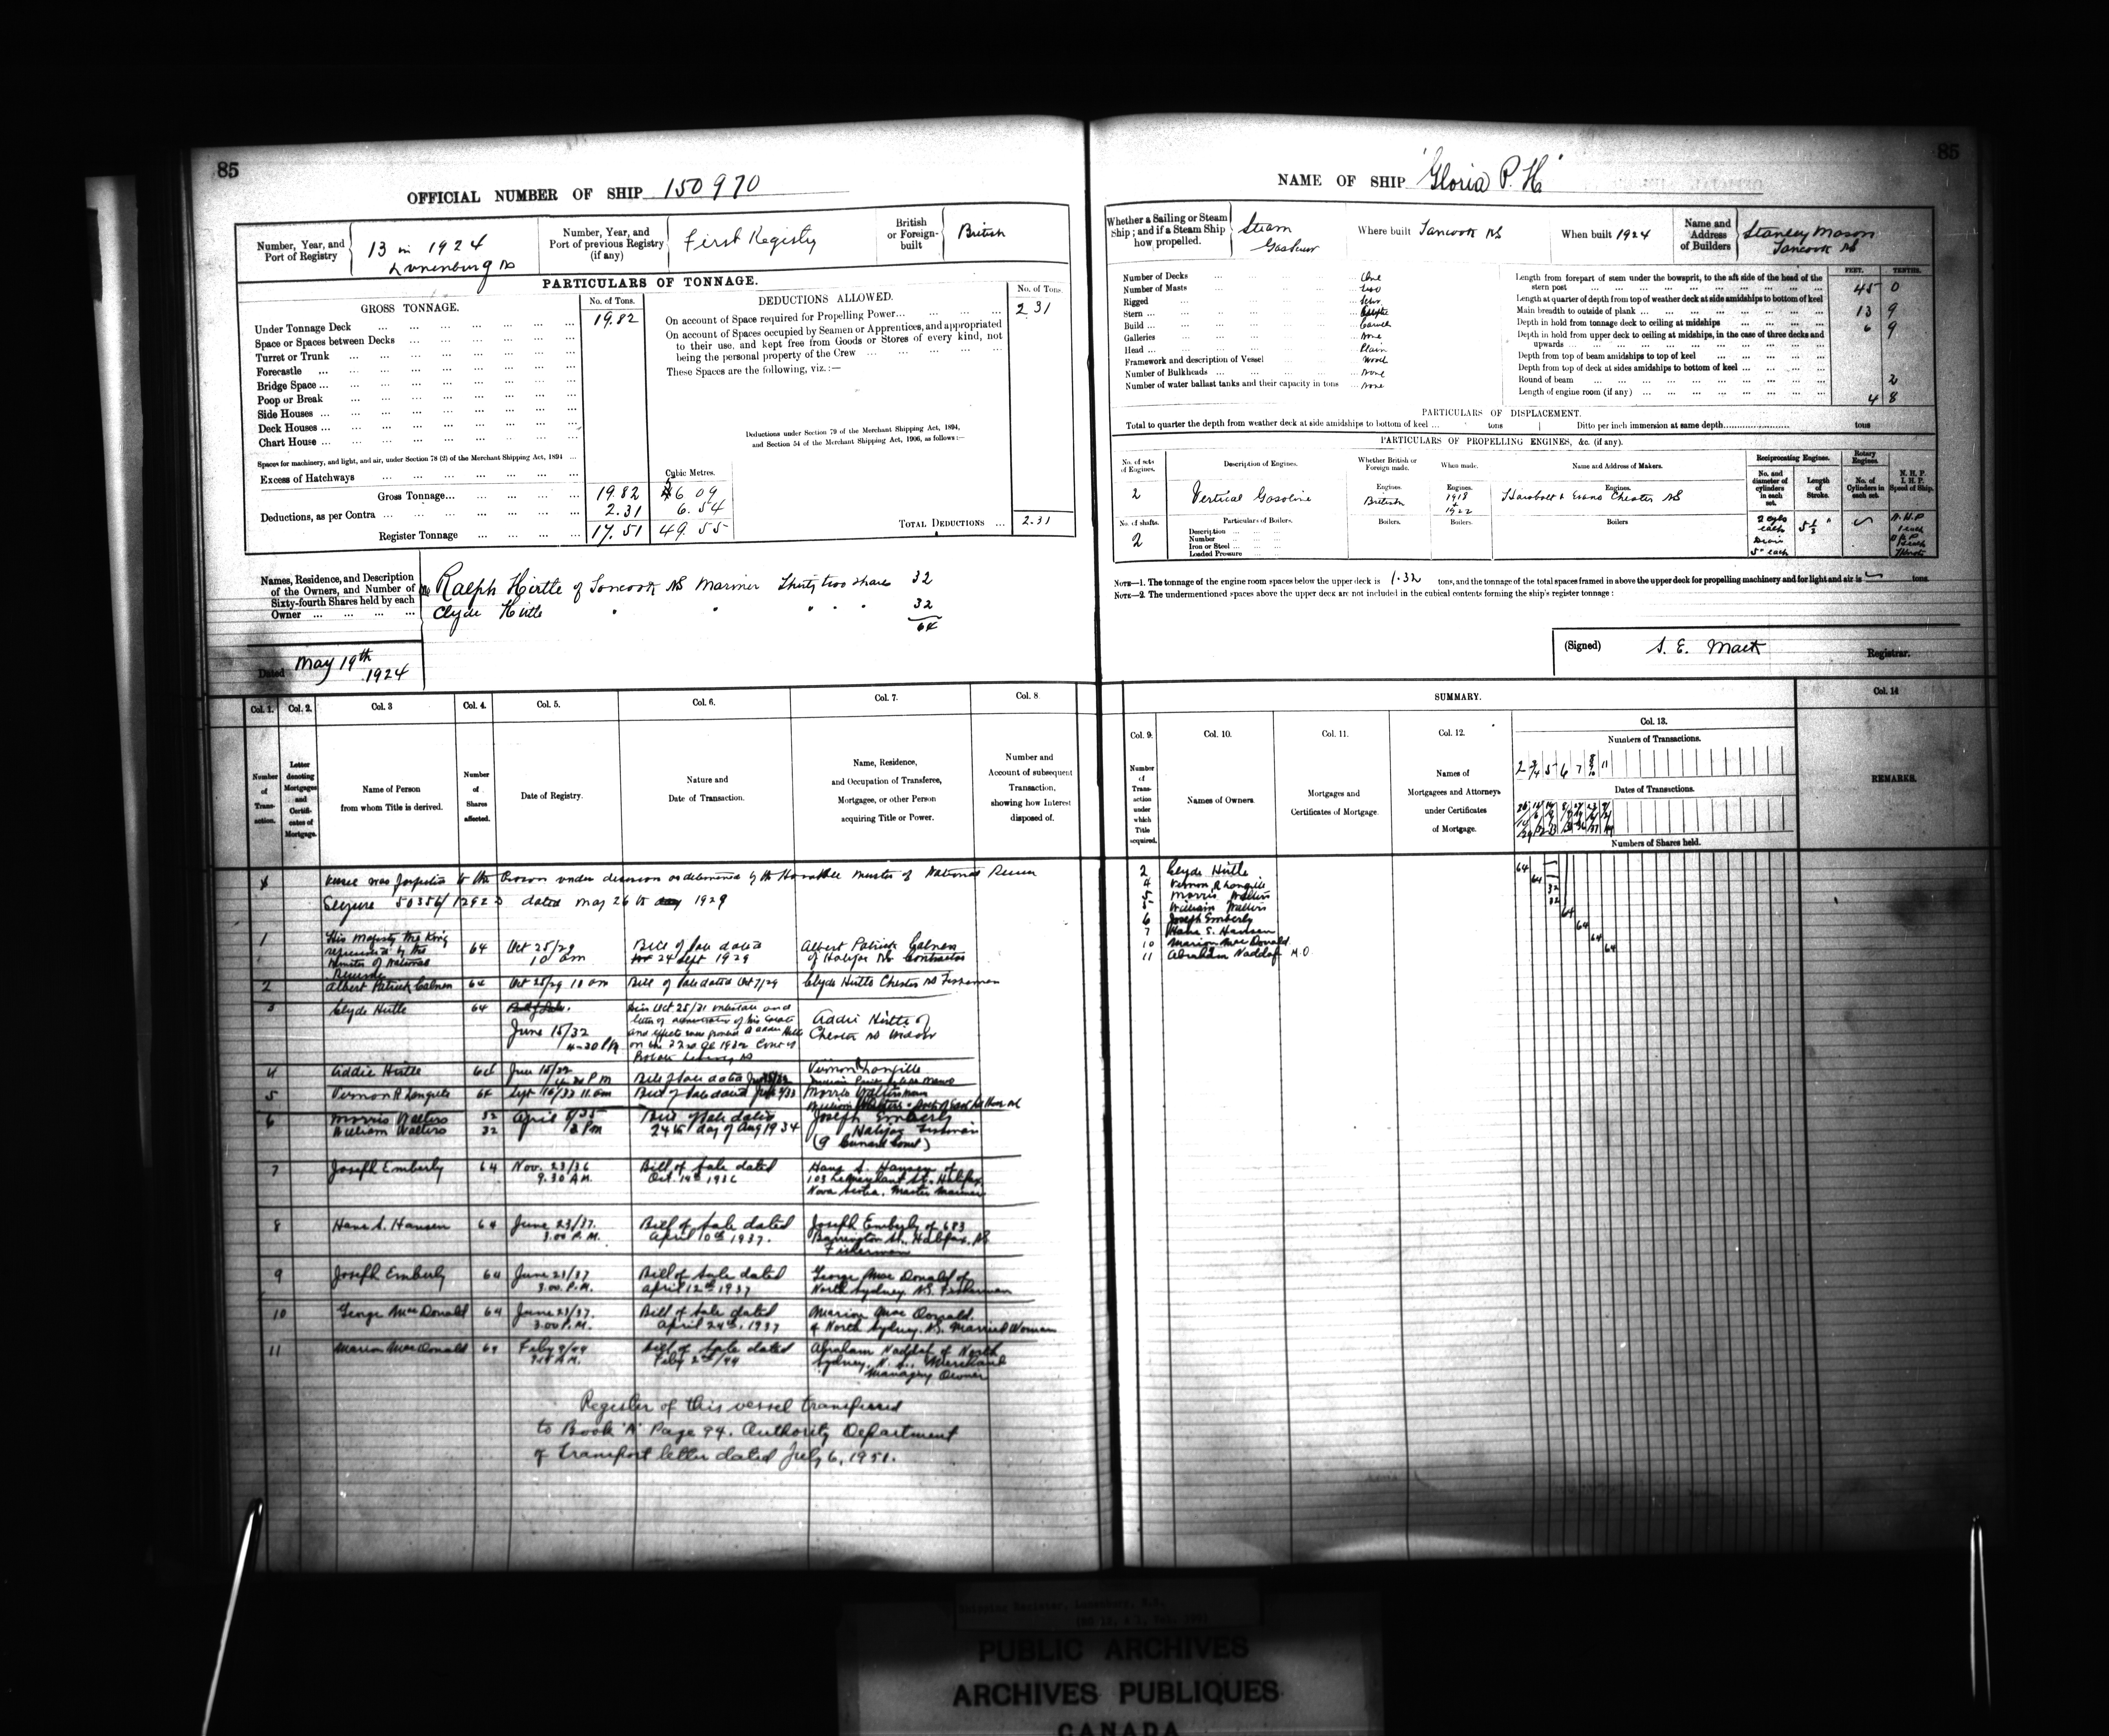 85
OFFICIAL NUMBER OF SHIP 150970
Number, Year, and Port of Registry
13 in 1924
Lunenburg NS
Number, Year, and Port of previous Registry (if any)
First Registry
British or Foreign-built
British
PARTICULARS OF TONNAGE.
GROSS TONNAGE.
No. of Tons.
Under Tonnage Deck 19.82
Space or Spaces between Decks
Turret or Trunk
Forecastle
Bridge Space
Poop or Break
Side Houses
Deck Houses
Chart House
Spaces for machinery, and light, and air, under Section 78 (2) of the Merchant Shipping Act, 1894
Excess of Hatchways
Cubic Metres.
Gross Tonnage 19.82 56 09
Deductions, as per Contra 2.31 6.54
Register Tonnage 17.51 49.55
DEDUCTIONS ALLOWED.
No. of Tons.
On account of Space required for Propelling Power 2 31
On account of Spaces occupied by Seamen or Apprentices, and appropriated
to their use, and kept free from Goods or Stores of every kind, not
being the personal property of the Crew
These Spaces are the following, viz.:—
Deductions under Section 79 of the Merchant Shipping Act, 1894,
and Section 54 of the Merchant Shipping Act, 1906, as follows:—
TOTAL DEDUCTIONS 2.31
Names, Residence, and Description
of the Owners, and Number of
Sixty-fourth Shares held by each
Owner
Ralph Hirtle of Tancook NS Mariner Thirty two shares 32
Clyde Hirtle " " " " " 32
64
Dated May 19th 1924
Col. 1. Col. 2. Col. 3 Col. 4. Col. 5. Col. 6. Col. 7. Col. 8
Number of Transaction.
Letter denoting Mortgages and Certificates of Mortgage.
Name of Person from whom Title is derived.
Number of Shares affected.
Date of Registry.
Nature and Date of Transaction.
Name, Residence, and Occupation of Transferee, Mortgagee, or other Person acquiring Title or Power.
Number and Account of subsequent Transaction, showing how Interest disposed of.
to the Crown under decision as determined by the Honorable Minister of National Revenue
Seizure 50356/12923 dated May 26th 1929
1 His Majesty the King represented by the Minister of National Revenue 64 Oct 25/29 10 am Bill of Sale dated 24 Sept 1929 Albert Patrick Calnen of Halifax NS Contractor
2 Albert Patrick Calnen 64 Oct 25/29 10 am Bill of Sale dated Oct 7/29 Clyde Hirtle Chester NS Fisherman
3 Clyde Hirtle 64 June 15/32 4-30 PM Oct 25/31 Addie Hirtle of Chester NS Widow
4 Addie Hirtle 64 June 15/32 PM Bill of Sale dated Vernon R Langille
5 Vernon R Langille 64 Sept 16/33 11 am Bill of Sale dated Morris Walters
William Walters
6 Morris Walters 32 April 9/35 2 PM Bill of Sale dated 24th day of Aug 1934 Joseph Emberly
William Walters 32 Halifax Fisherman
(9 Cunard Court)
7 Joseph Emberly 64 Nov. 23/36 9.30 A.M. Bill of Sale dated Oct. 14th 1936 Hans S. Hansen of 103 LeMarchant St. Halifax, Nova Scotia, Master Mariner
8 Hans S. Hansen 64 June 23/37. 3.00 P.M. Bill of Sale dated April 10th 1937. Joseph Emberly of 683 Barrington St., Halifax, NS Fisherman
9 Joseph Emberly 64 June 23/37 3.00 P.M. Bill of Sale dated April 12th 1937 George MacDonald of North Sydney NS. Fisherman
10 George MacDonald 64 June 23/37. 3.00 P.M. Bill of Sale dated April 24th, 1937 Marion MacDonald of North Sydney, NS. Married Woman
11 Marion MacDonald 64 Feby 9/44 A.M. Bill of Sale dated Feby 2nd/44 Abraham Naddaf of North Sydney, N.S., Merchant
Managing Owner
Register of this vessel transferred
to Book 'A' Page 94. Authority Department
of Transport letter dated July 6, 1951.
85
NAME OF SHIP "Gloria P. H"
Whether a Sailing or Steam Ship; and if a Steam Ship how propelled.
Steam
Where built Tancook NS
When built 1924
Name and Address of Builders
Stanley Mason
Tancook NS
Number of Decks One
Number of Masts two
Rigged Schr.
Stern
Build Carvel
Galleries None
Head Plain
Framework and description of Vessel Wood
Number of Bulkheads None
Number of water ballast tanks and their capacity in tons None
FEET. TENTHS.
Length from forepart of stem under the bowsprit, to the aft side of the head of the
stern post 45 0
Length at quarter of depth from top of weather deck at side amidships to bottom of keel
Main breadth to outside of plank 13 9
Depth in hold from tonnage deck to ceiling at midships 6 9
Depth in hold from upper deck to ceiling at midships, in the case of three decks and
upwards
Depth from top of beam amidships to top of keel
Depth from top of deck at sides amidships to bottom of keel
Round of beam 2
Length of engine room (if any) 4 8
PARTICULARS OF DISPLACEMENT.
Total to quarter the depth from weather deck at side amidships to bottom of keel tons Ditto per inch immersion at same depth tons
PARTICULARS OF PROPELLING ENGINES, &c. (if any).
No. of sets of Engines.
Description of Engines.
Whether British or Foreign made.
When made.
Name and Address of Makers.
Reciprocating Engines.
Rotary Engines.
No. and diameter of cylinders in each set.
Length of Stroke.
No. of Cylinders in each set.
N. H. P.
I. H. P.
Speed of Ship.
2
Vertical Gasoline
Engines.
British
Engines.
1918
+
1922
Engines.
& Evans Chester NS
No. of shafts.
2
Particulars of Boilers.
Description
Number
Iron or Steel
Loaded Pressure
Boilers.
Boilers.
Boilers
2 cyls each
5" each
5½"
NOTE—1. The tonnage of the engine room spaces below the upper deck is 1.32 tons, and the tonnage of the total spaces framed in above the upper deck for propelling machinery and for light and air is tons.
NOTE—2. The undermentioned spaces above the upper deck are not included in the cubical contents forming the ship's register tonnage:
(Signed) S. E. Mack Registrar.
SUMMARY.
Col. 9. Col. 10. Col. 11. Col. 12. Col. 13. Col. 14
Number of Transaction under which Title acquired.
Names of Owners.
Mortgages and Certificates of Mortgage.
Names of Mortgagees and Attorneys under Certificates of Mortgage.
Numbers of Transactions.
2 3/4 5 6 7 8 9 10 11
Dates of Transactions.
Numbers of Shares held.
REMARKS.
2 Clyde Hirtle 64
4 Vernon R Langille 64
5 Morris Walters 32
5 William Walters 32
6 Joseph Emberly 64
7 Hans S. Hansen 64
10 Marion MacDonald 64
11 Abraham Naddaf M.O. 64
PUBLIC ARCHIVES
ARCHIVES PUBLIQUES
CANADA